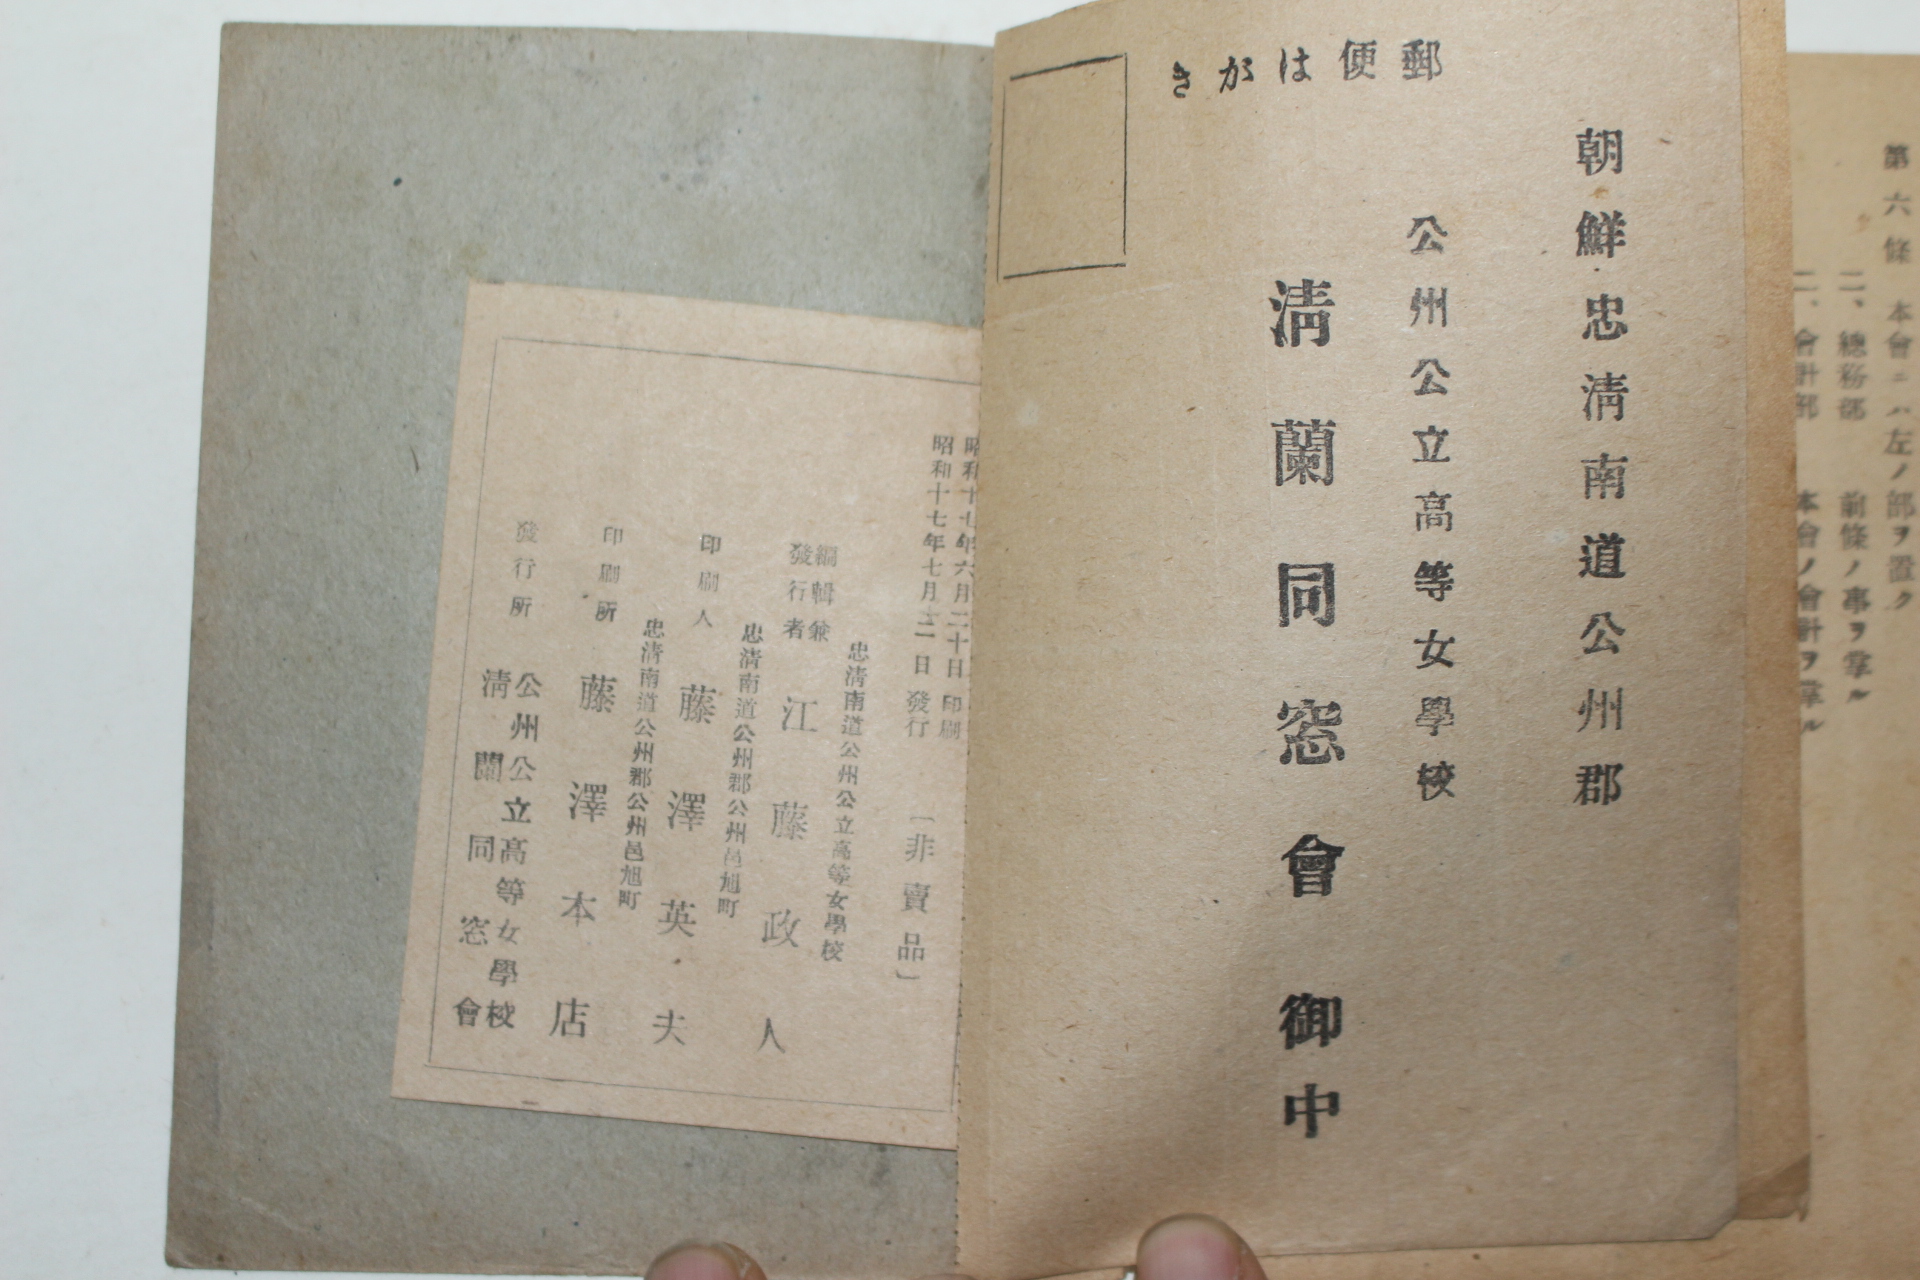 第六條 本會ニハ左ノ部ヲ置ク
二、總務部 前條ノ事ヲ掌ル
二、會計部 本會ノ會計ヲ掌ル
郵便はがき
朝鮮忠淸南道公州郡
公州公立高等女學校
淸蘭同窓會御中
昭和十七年六月二十日印刷
昭和十七年七月十二日發行
〔非賣品〕
忠淸南道公州公立高等女學校
編輯兼
發行者 江藤政人
忠淸南道公州郡公州邑旭町
印刷人 藤澤英夫
忠淸南道公州郡公州邑旭町
印刷所 藤澤本店
公州公立高等女學校
發行所 淸蘭同窓會